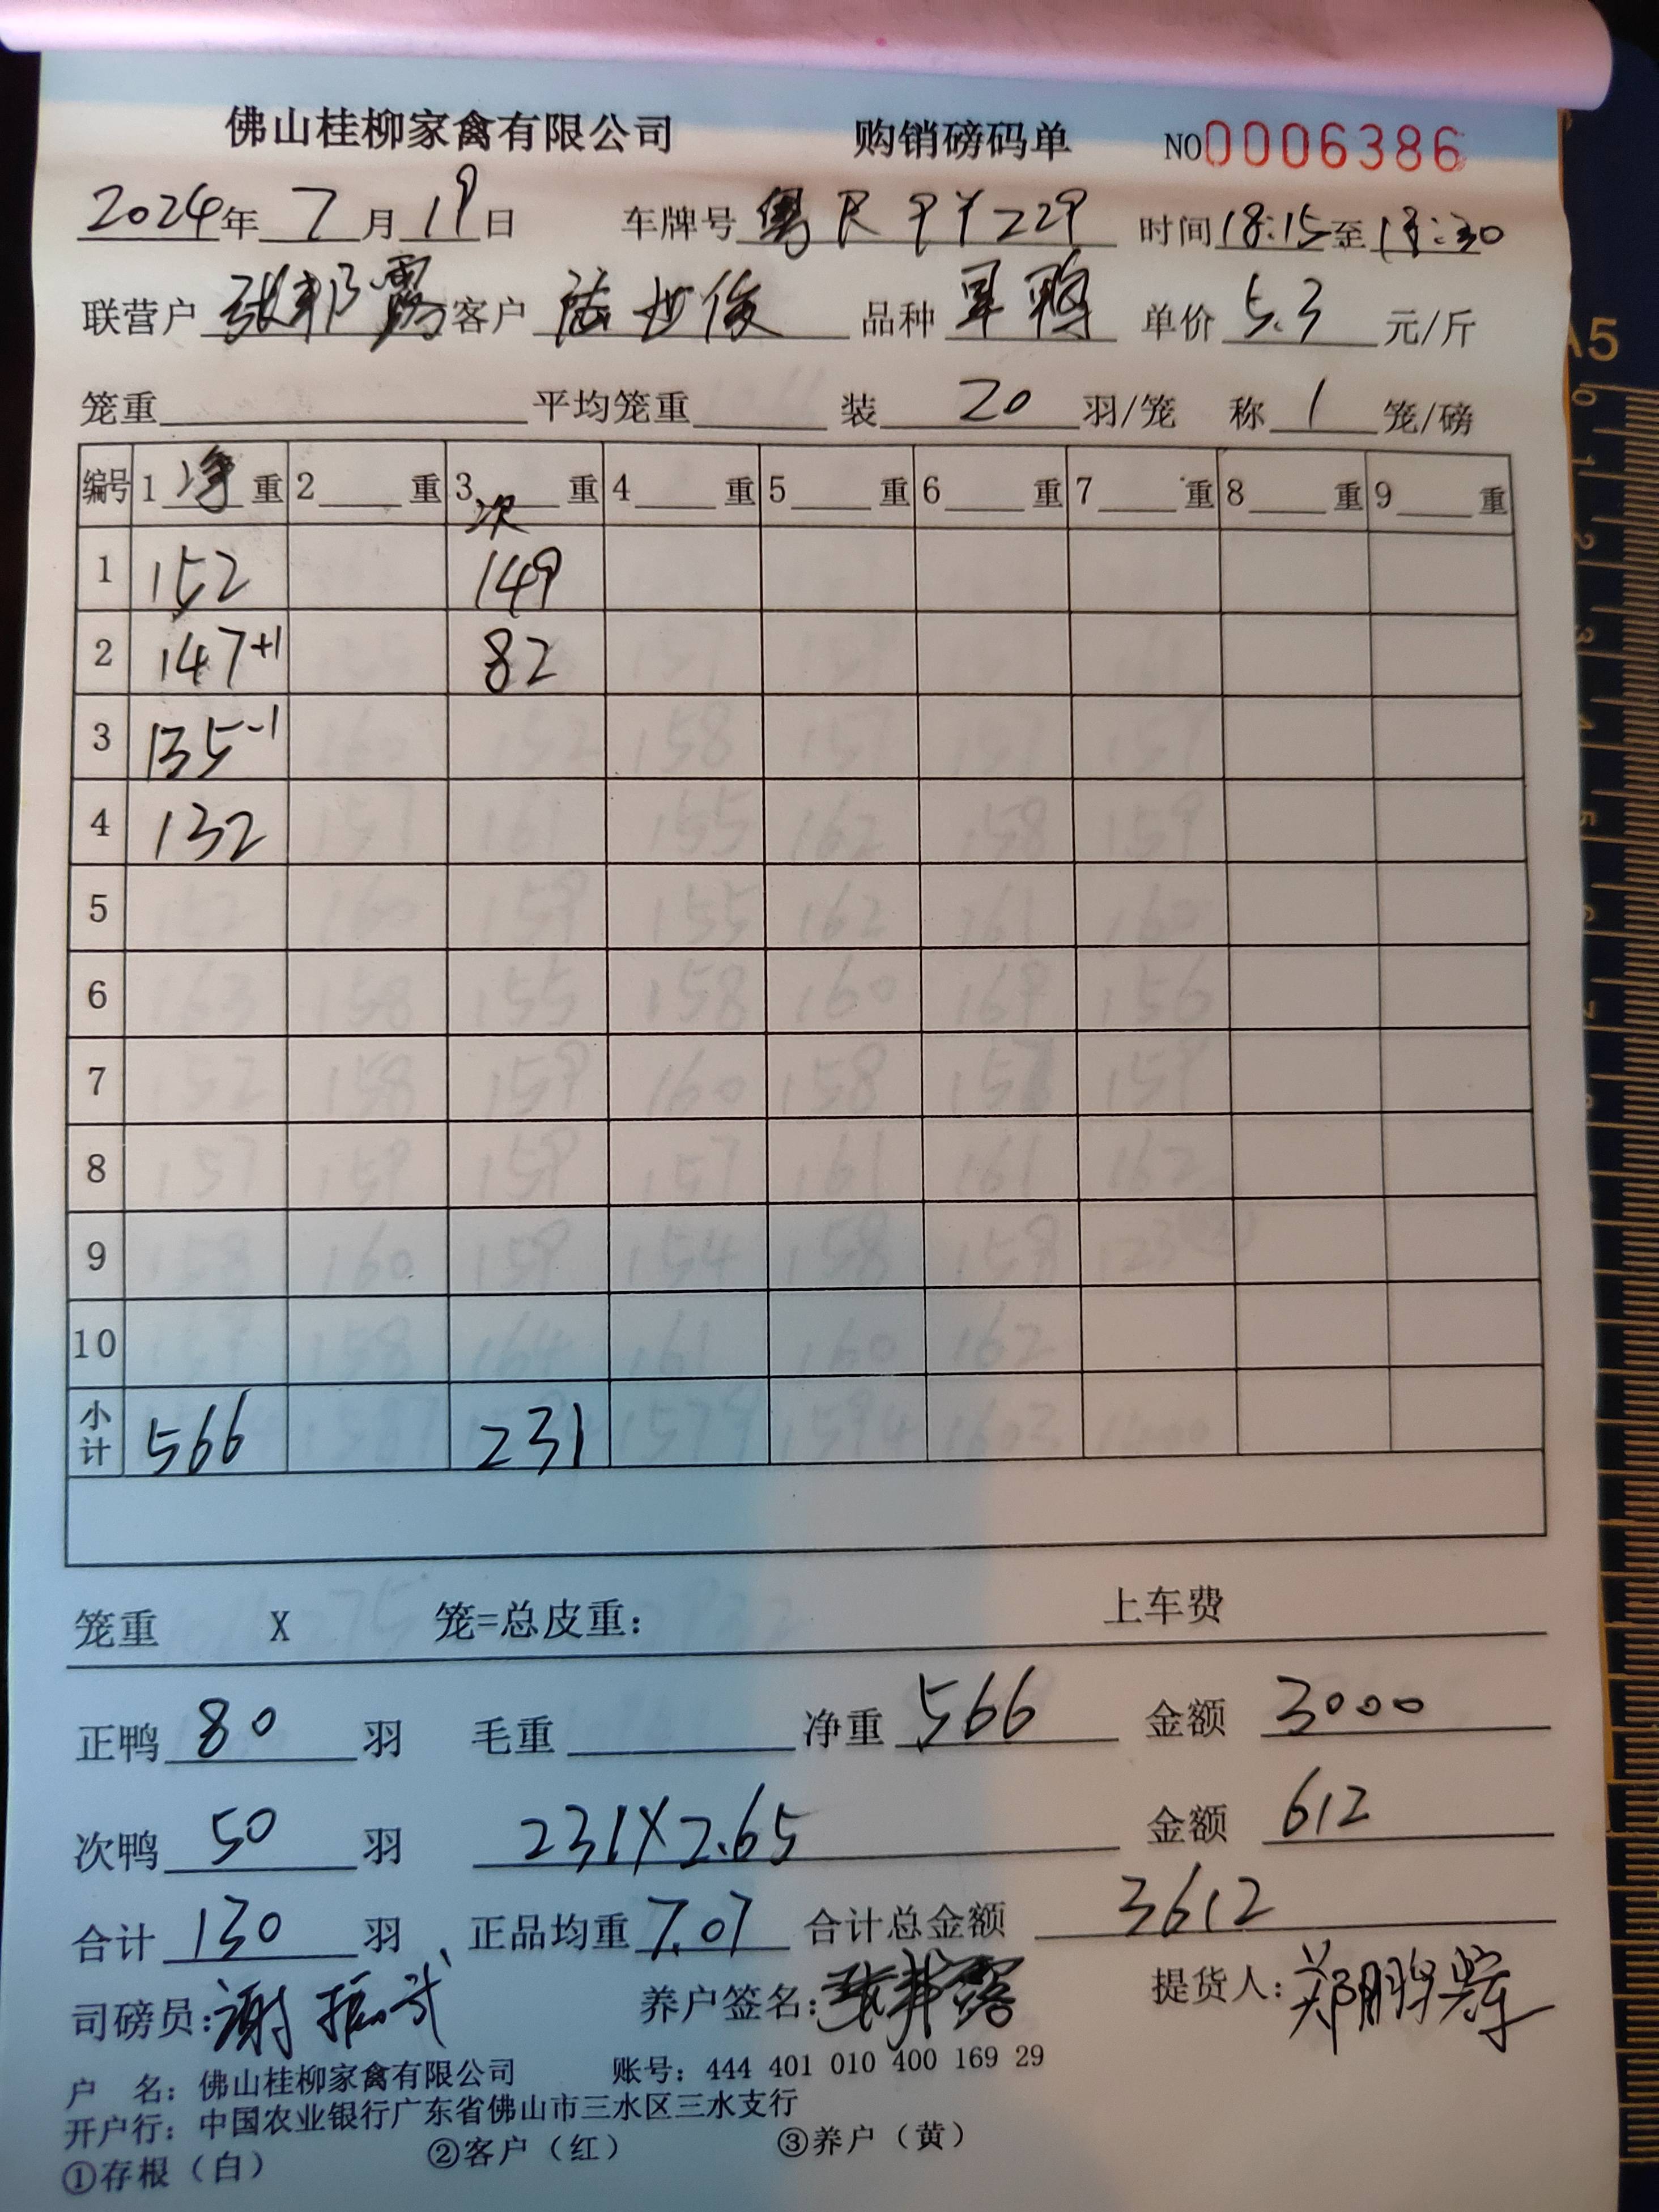 佛山桂柳家禽有限公司 购销磅码单 NO0006386
2024年 7月 19日 车牌号 粤R9Y229 时间 18:15 至 18:30
联营户 张邦露 客户 陆世俊 品种 旱鸭 单价 5.3 元/斤
笼重 平均笼重 装 20 羽/笼 称 1 笼/磅
编号 1 净 重 2 重 3 次 重 4 重 5 重 6 重 7 重 8 重 9 重
1 152 149
2 147+1 82
3 135-1
4 132
5
6
7
8
9
10
小计 566 231
笼重 X 笼=总皮重： 上车费
正鸭 80 羽 毛重 净重 566 金额 3000
次鸭 50 羽 231X2.65 金额 612
合计 130 羽 正品均重 7.07 合计总金额 3612
司磅员：谢振武 养户签名：张邦露 提货人：郑鹏辉
户 名：佛山桂柳家禽有限公司 账号：444 401 010 400 169 29
开户行：中国农业银行广东省佛山市三水区三水支行
①存根（白） ②客户（红） ③养户（黄）
A5